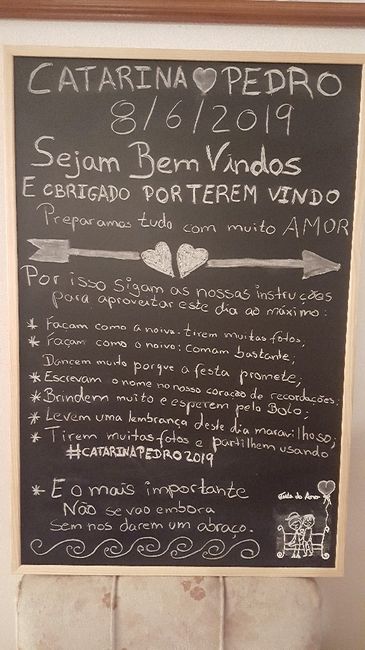 CATARINA PEDRO
8/6/2019
Sejam Bem Vindos
E OBRIGADO POR TEREM VINDO
Preparamos tudo com muito AMOR
Por isso sigam as nossas instruções
para aproveitar este dia ao máximo:
* Façam como a noiva: tirem muitas fotos;
* Façam como o noivo: comam bastante;
Dancem muito porque a festa promete;
* Escrevam o nome no nosso coração de recordações;
* Brindem muito e esperem pelo Bolo;
* Levem uma lembrança deste dia maravilhoso;
* Tirem muitas fotos e partilhem usando
#CATARINAPEDRO2019
* E o mais importante
Não se vão embora
sem nos darem um abraço.
do Amor